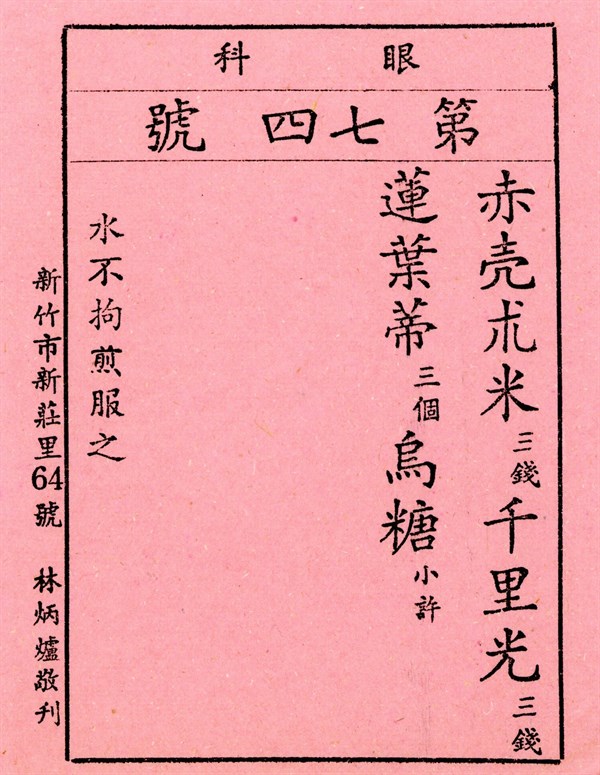 眼科
第七四號
赤壳朮米三錢千里光三錢
蓮葉蒂三個烏糖小許
水不拘煎服之
新竹市新莊里64號　林炳爐敬刊